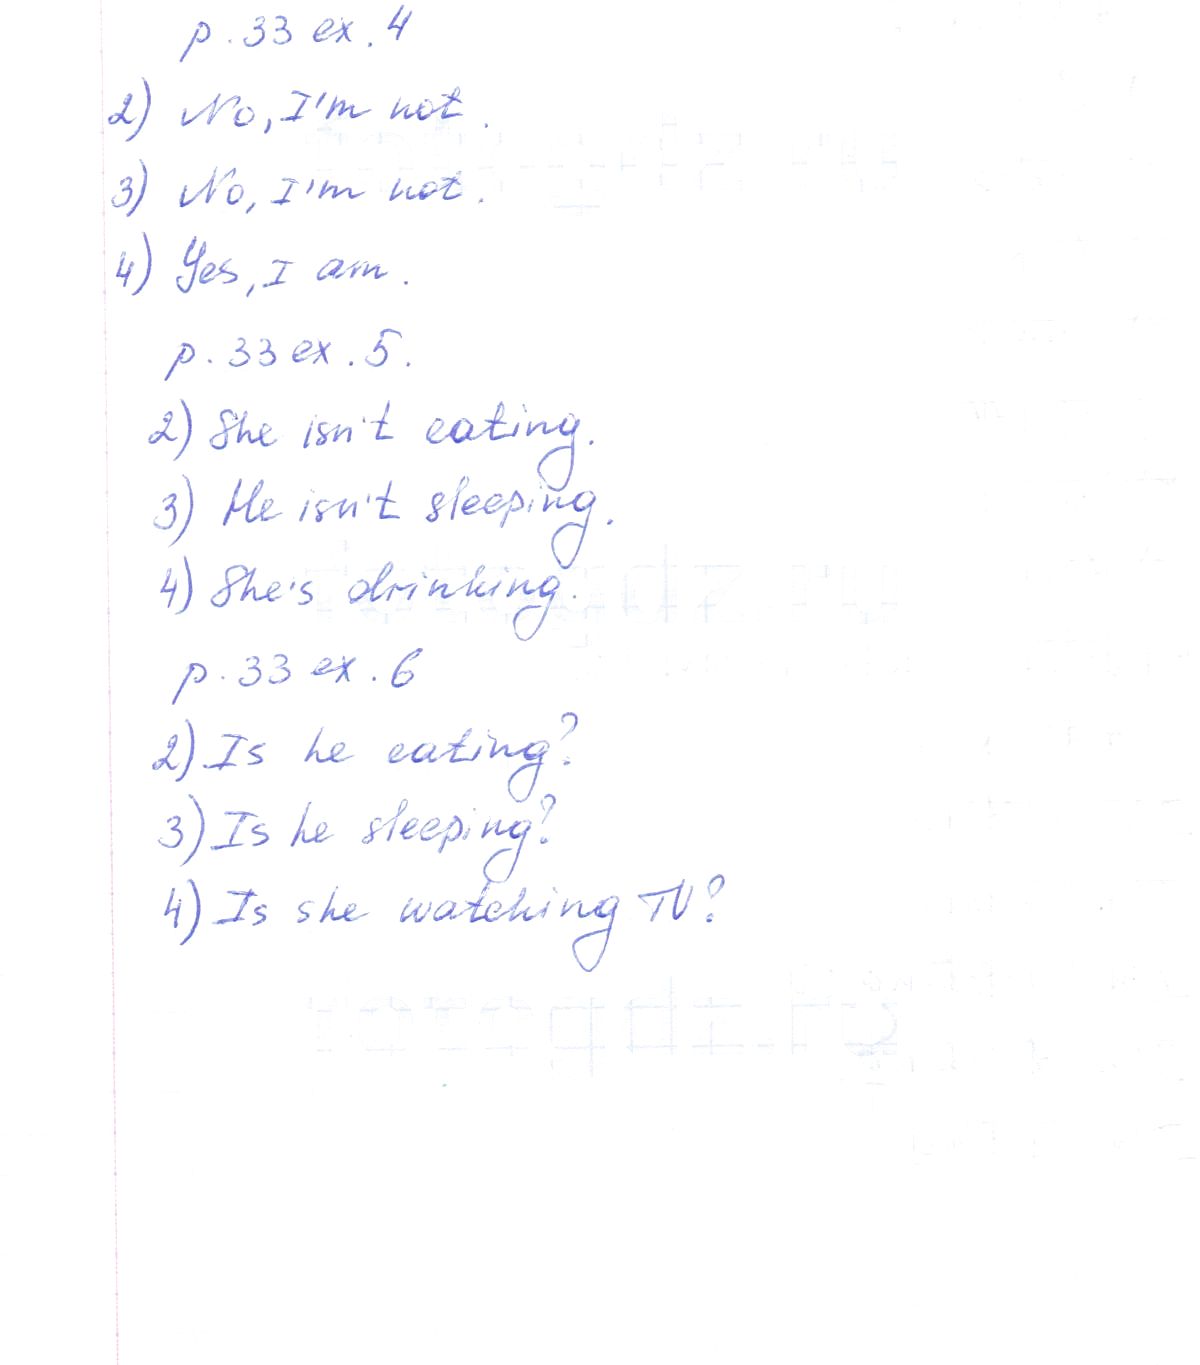 p. 33 ex. 4
2) No, I'm not.
3) No, I'm not.
4) Yes, I am.
p. 33 ex. 5.
2) She isn't eating.
3) He isn't sleeping.
4) She's drinking.
p. 33 ex. 6
2) Is he eating?
3) Is he sleeping?
4) Is she watching TV?